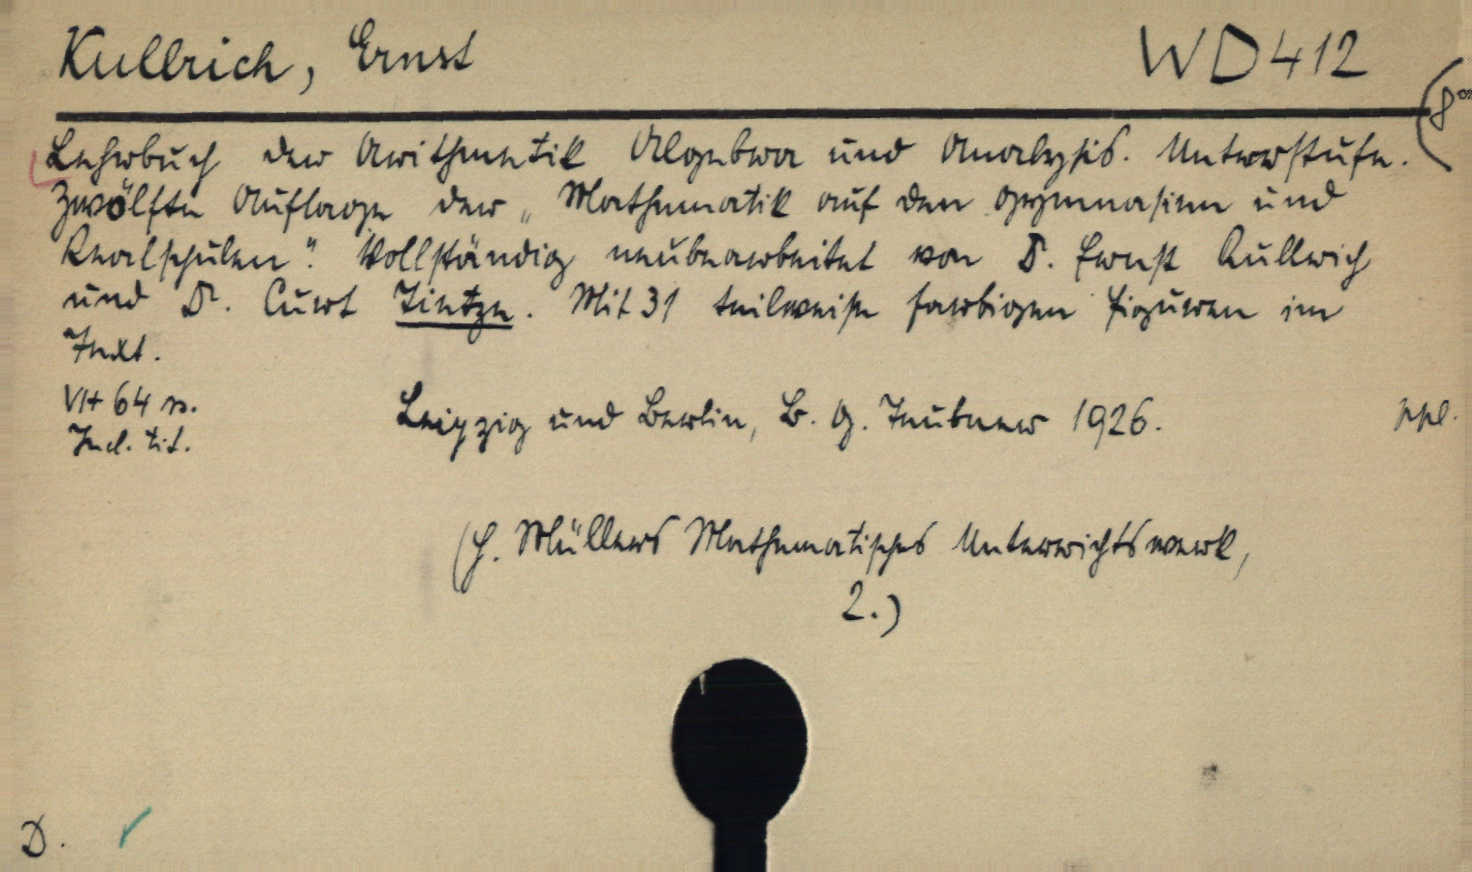 Kullrich, Ernst WD 412
(8°
Lehrbuch der Arithmetik Algebra und Analysis. Unterstufe.
Zwölfte Auflage der „Mathematik auf den Gymnasien und
Realschulen“. Vollständig neubearbeitet von D. Ernst Kullrich
und Dr. Curt Tietze. Mit 31 teilweise farbigen Figuren im
Text.
VI+64 s.
Incl. tit.
Leipzig und Berlin, B. G. Teubner 1926. ppl.
(H. Müllers Mathematisches Unterrichtswerk,
2.)
D.